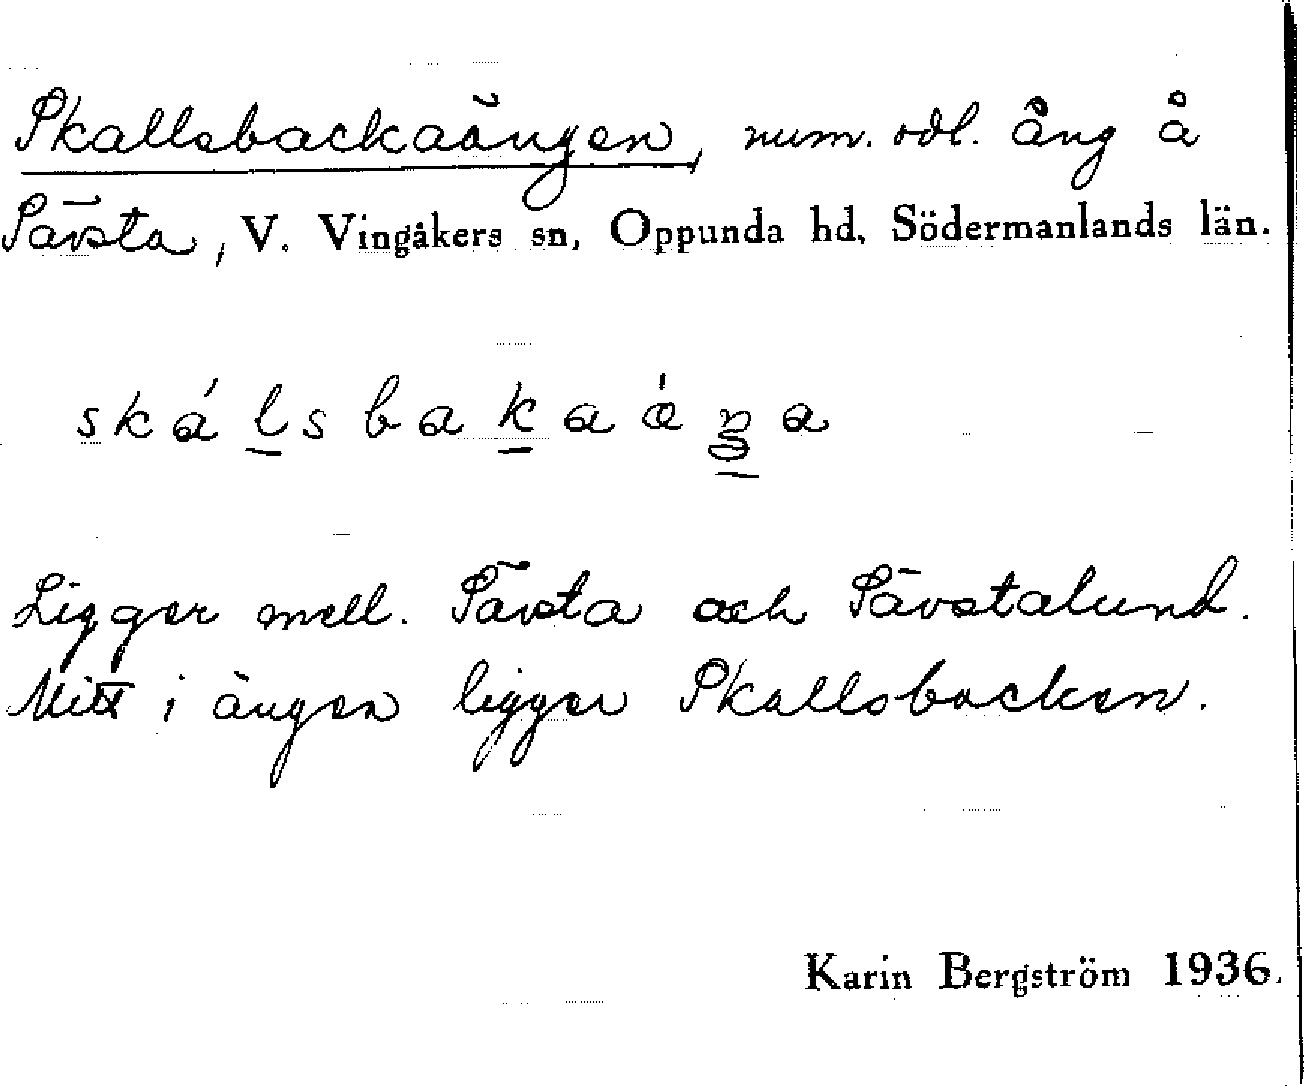 Skallsbackaängen, num. odl. äng å
Sävsta, V. Vingåkers sn, Oppunda hd, Södermanlands län.
Ligger mell. Sävsta och Sävstalund.
Mitt i ängen ligger Skallsbacken.
Karin Bergström 1936.